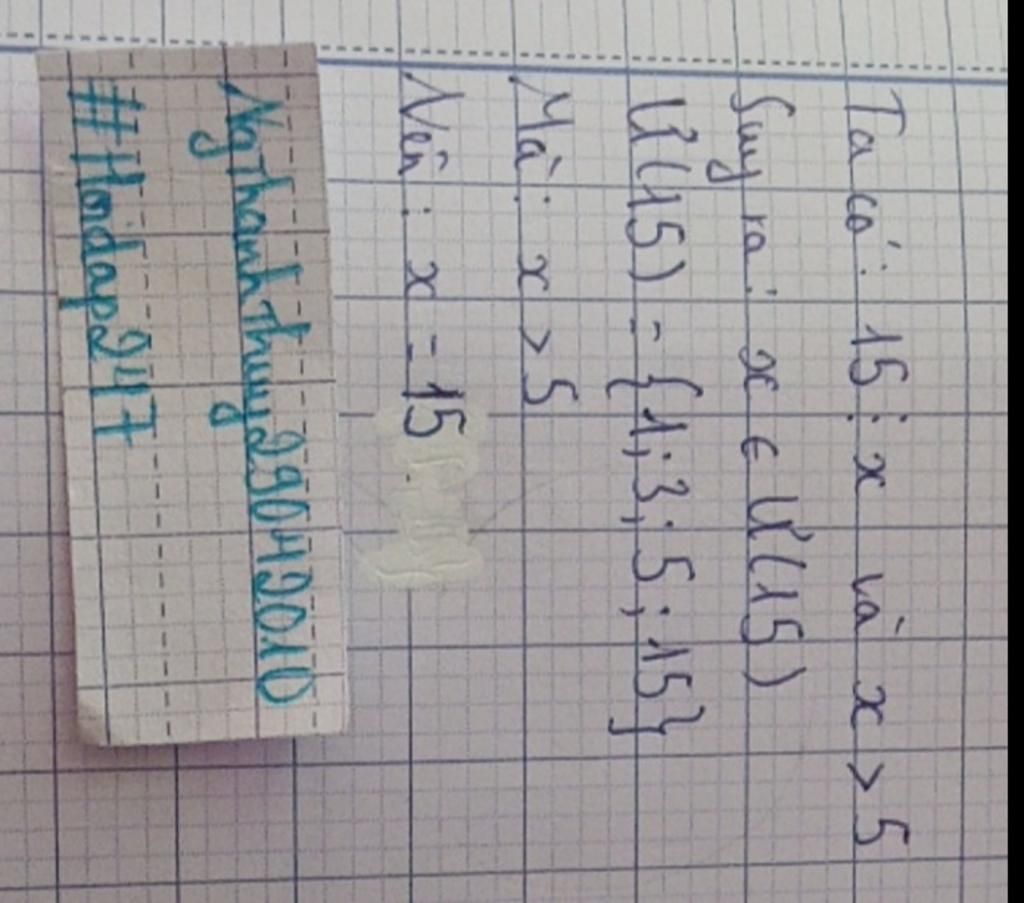 Ta có: 15 ⋮ x và x > 5
Suy ra: x ∈ Ư(15)
Ư(15) = {1; 3; 5; 15}
Mà: x > 5
Nên: x = 15
NgThanhThuy29042010
#Hoidap247